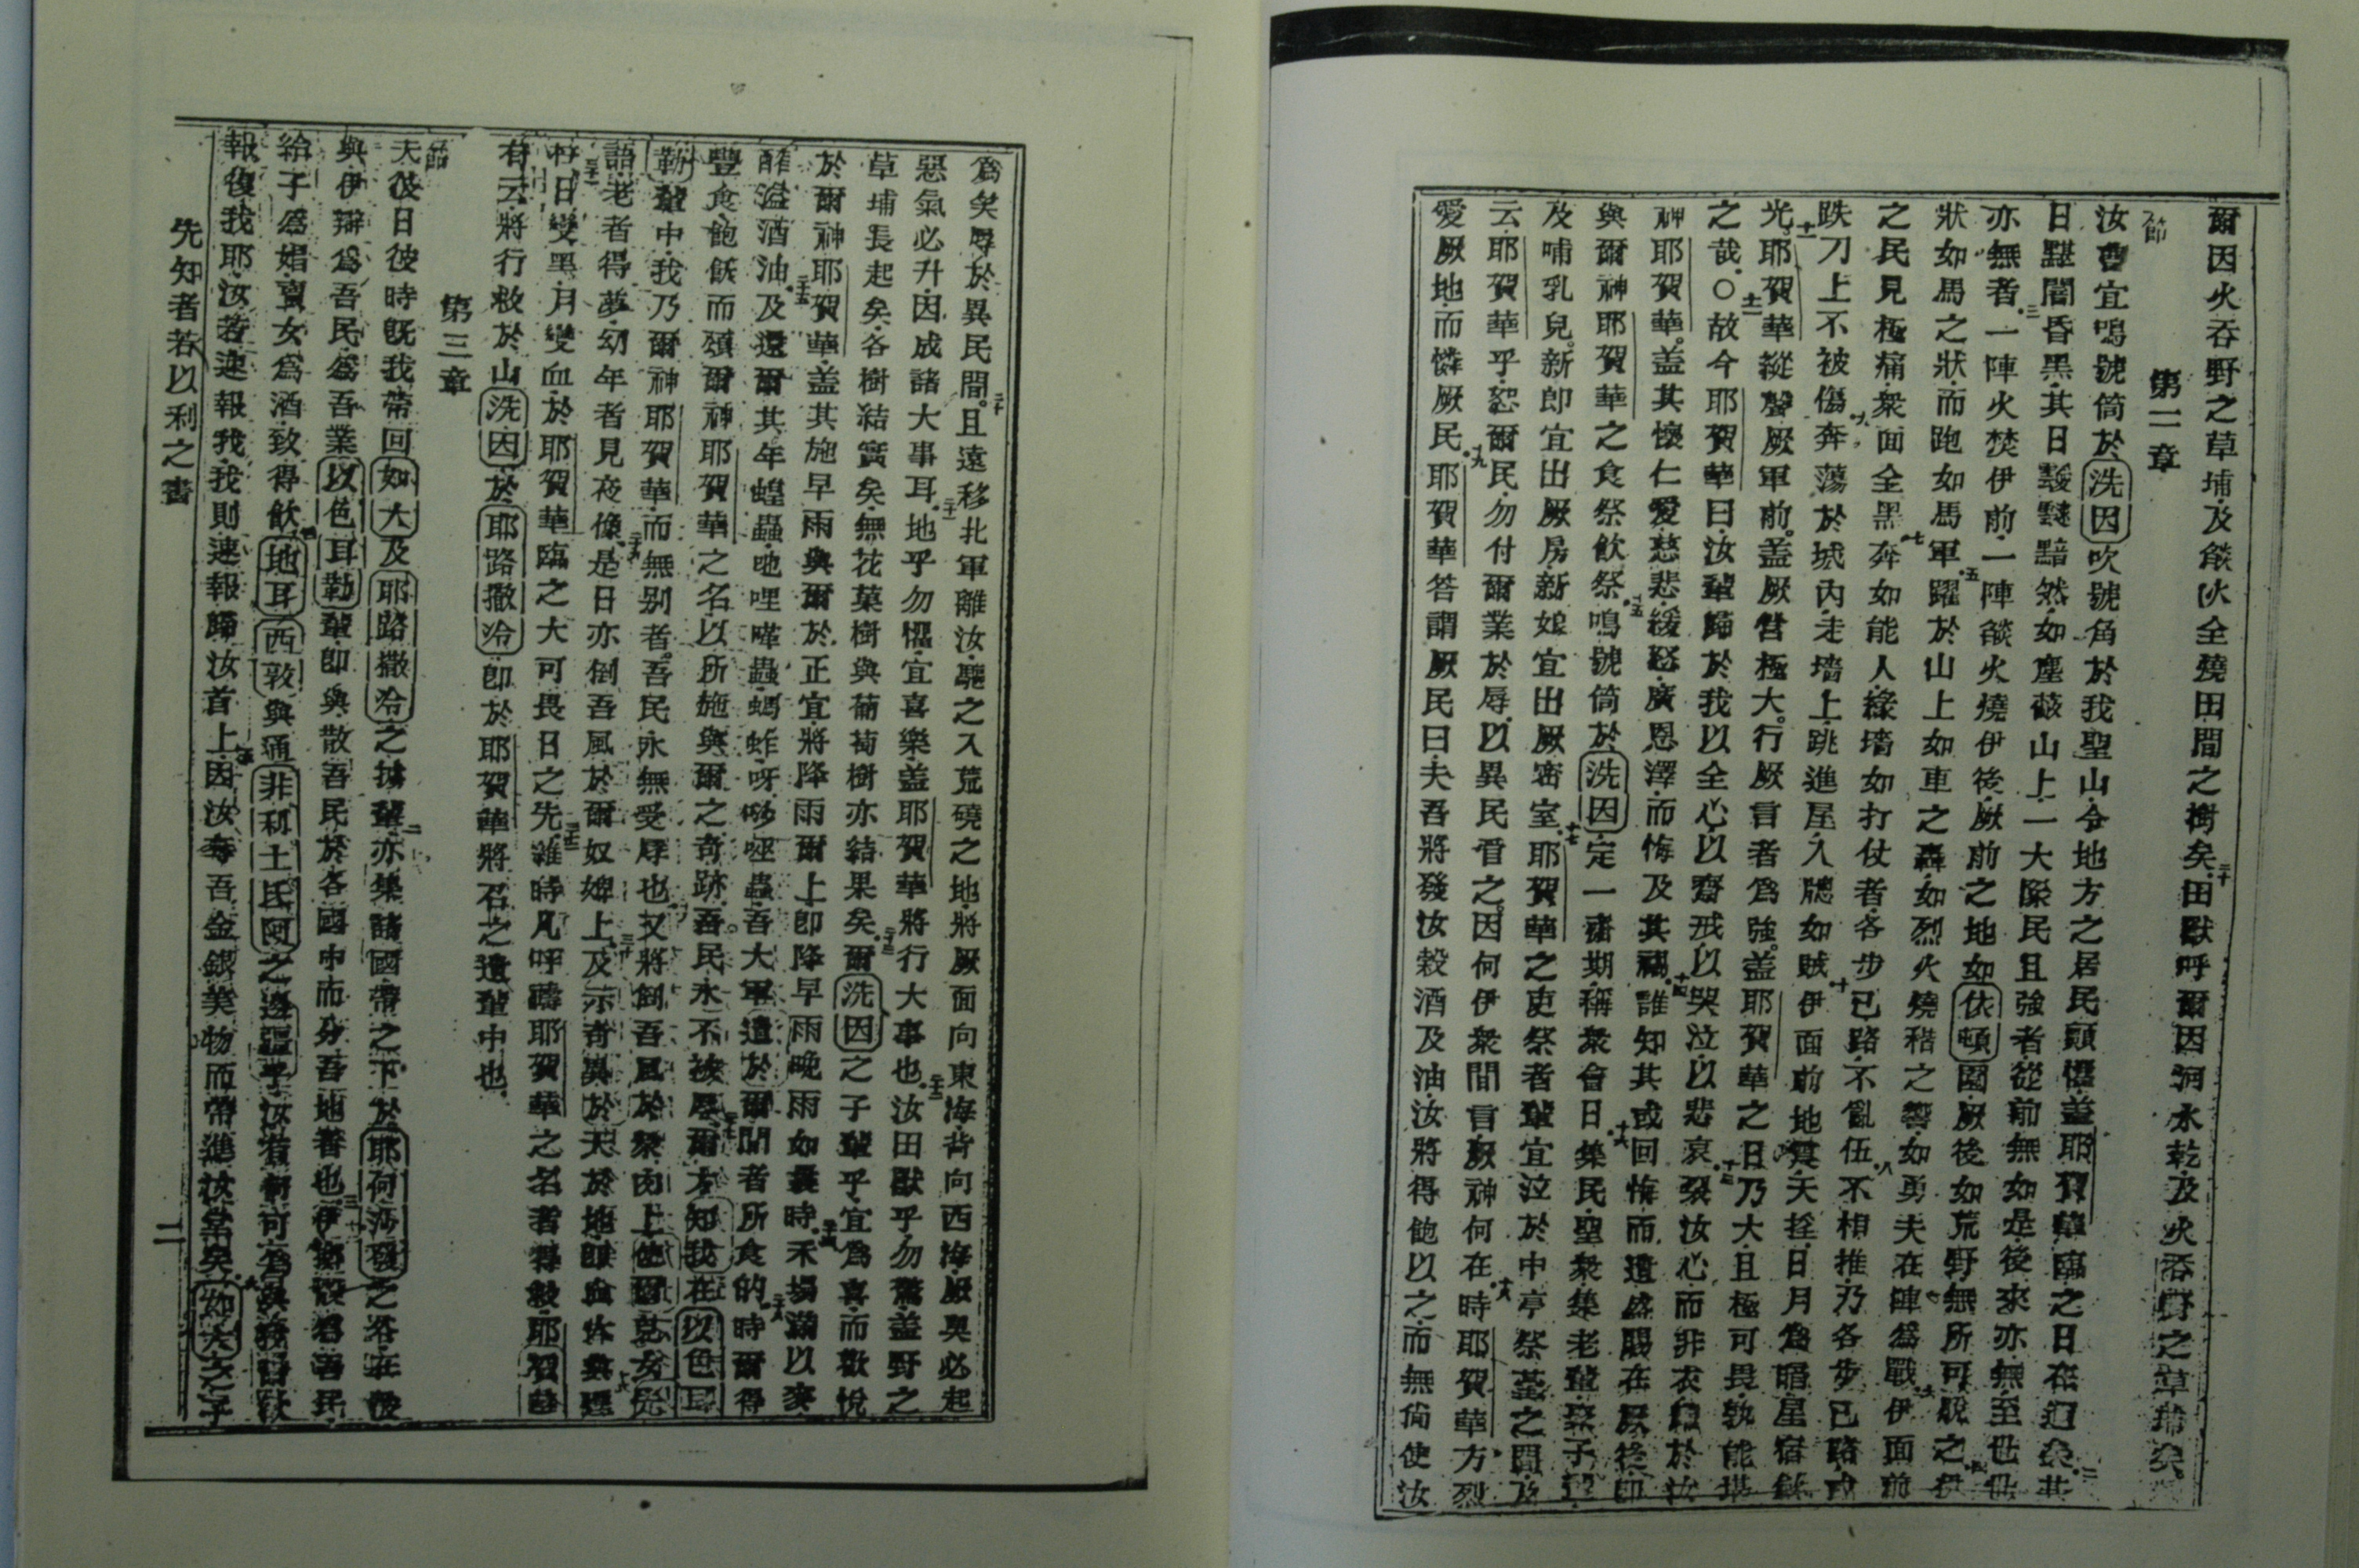 爾因火吞野之草埔及燄火全燒田間之樹矣二十田獸呼爾因洞水乾及火吞野之草埔矣
第二章
一節
汝曹宜鳴號筒於洗因吹號角於我聖山令地方之居民顫懼蓋耶賀華臨之日在迫矣二其
日黮闇昏黑其日靉靆黯然如塵蔽山上一大隊民且強者從前無如是後來亦無至世世
亦無者三一陣火焚伊前一陣燄火燒伊後厥前之地如依頓園厥後如荒野無所可脫之四伊
狀如馬之狀而跑如馬軍五躍於山上如車之轟如烈火燒稭之響如勇夫在陣為戰六伊面前
之民見極痛衆面全黑七奔如能人緣墻如打仗者各步已路不亂伍八不相推乃各步已路或
跌刀上不被傷九奔蕩於城內走墻上跳進屋入牕如賊十伊面前地震天捘日月為暗星宿
光十一耶賀華縱聲厥軍前蓋厥營極大行厥言者為強蓋耶賀華之日乃大且極可畏孰能堪
之哉○十二故今耶賀華曰汝輩歸於我以全心以齋戒以哭泣以悲哀十三裂汝心而非衣歸於汝
神耶賀華蓋其懷仁愛慈悲緩怒廣恩澤而悔及其禍十四誰知其或回悔而遺 賜在厥後即
與爾神耶賀華之食祭飲祭十五鳴號筒於洗因定一齋期稱衆會日十六集民聖衆集老輩聚子
及哺乳兒新郎宜出厥房新娘宜出厥密室十七耶賀華之吏祭者輩宜泣於中亭祭臺之間及
云耶賀華乎恕爾民勿付爾業於辱以異民督之因何伊衆間言厥神何在十八時耶賀華方烈
愛厥地而憐厥民十九耶賀華答謂厥民曰夫吾將發汝穀酒及油汝將得飽以之而無尚使汝
為矣辱於異民間二十且遠移北軍離汝驅之入荒磽之地將厥面向東海背向西海厥臭必起
惡氣必升因成諸大事耳二十一地乎勿懼宜喜樂蓋耶賀華將行大事也二十二汝田獸乎勿驚蓋野之
草埔長起矣各樹結實矣無花菓樹與葡萄樹亦結果矣二十三爾洗因之子輩乎宜為喜而歡悅
於爾神耶賀華蓋其施早雨與爾於正宜將降雨爾上即降早雨晚雨如曩時二十四禾場滿以麥
醡溢酒油二十五及還爾其年蝗蟲哋哩㗲蟲螞蚱呀唦 蟲吾大軍遣於爾間者所食的二十六時爾得
豐食飽飫而頌爾神耶賀華之名以所施與爾之奇跡吾民永不被辱二十七爾方知我在以色耳
勒輩中我乃爾神耶賀華而無別者吾民永無受辱也又將倒吾風於衆肉上使爾 女
語老者得夢幼年者見夜像二十九是日亦倒吾風於爾奴婢上三十及示奇異於天於地即血火與煙
三十一日變黑月變血於耶賀華臨之大可畏日之先三十二雖時凡呼禱耶賀華之名者得救耶賀華
有云將行救於山洗因於耶路撒冷即於耶賀華將召之遺輩中也
第三章
一節
夫彼日彼時旣我帶回如大及耶路撒冷之擄輩二亦集諸國帶之下於耶何沙發之谷在彼
與伊辯為吾民為吾業以色耳勒輩即與散吾民於各國中而分吾地者也三伊鬮設為吾民
給子為娼賣女為酒致得飲四地耳西敦與通非利士氏阿之邊疆乎汝有何可為與
報復我耶汝若速報我我則速報歸汝首上五因汝奪吾金銀美物而帶進汝堂矣六如大之子
先知者若以利之書
二